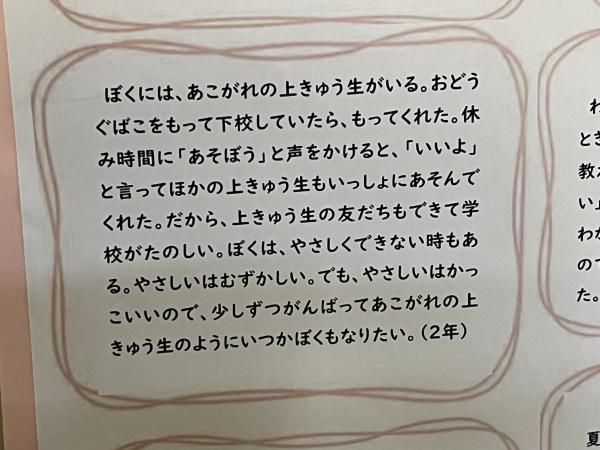 ぼくには、あこがれの上きゅう生がいる。おどう
ぐばこをもって下校していたら、もってくれた。休
み時間に「あそぼう」と声をかけると、「いいよ」
と言ってほかの上きゅう生もいっしょにあそんで
くれた。だから、上きゅう生の友だちもできて学
校がたのしい。ぼくは、やさしくできない時もあ
る。やさしいはむずかしい。でも、やさしいはかっ
こいいので、少しずつがんばってあこがれの上
きゅう生のようにいつかぼくもなりたい。(2年)
わ
とき
教え
い」
わか
ので
た。
夏